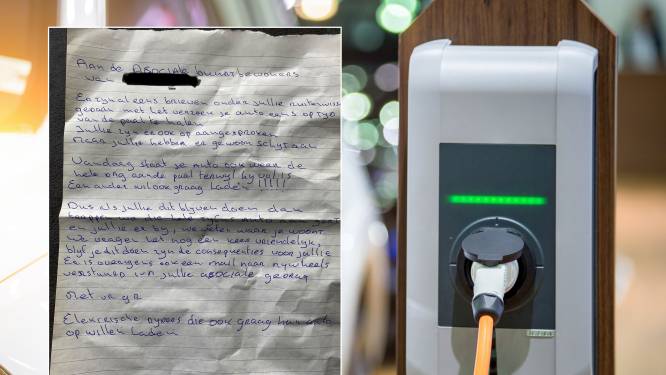 Aan de ASOCIALE buurtbewoners
van
Er zyn al eens brieven onder jullie ruitenwis
gedaan met het verzoek je auto eens op tyd
van de paal te halen
Jullie zyn er ook op aangesproken
maar jullie hebben er gewoon schyt aan
Vandaag staat je auto ook weer de
hele dag aan de paal terwyl hy vol is
Een ander wil ook graag laden !!!!!
Dus als jullie dit blyven doen dan
en jullie er by, we weten waar je woont
We vragen het nog een keer vriendelyk,
blyf je dit doen zyn de consequenties voor jullie
Er is overigens ook een mail naar mywheels
verstuurd i.v.m jullie ASOCIALE gedrag
Met vr gr
Elektrische ryders die ook graag hun auto
op willen laden